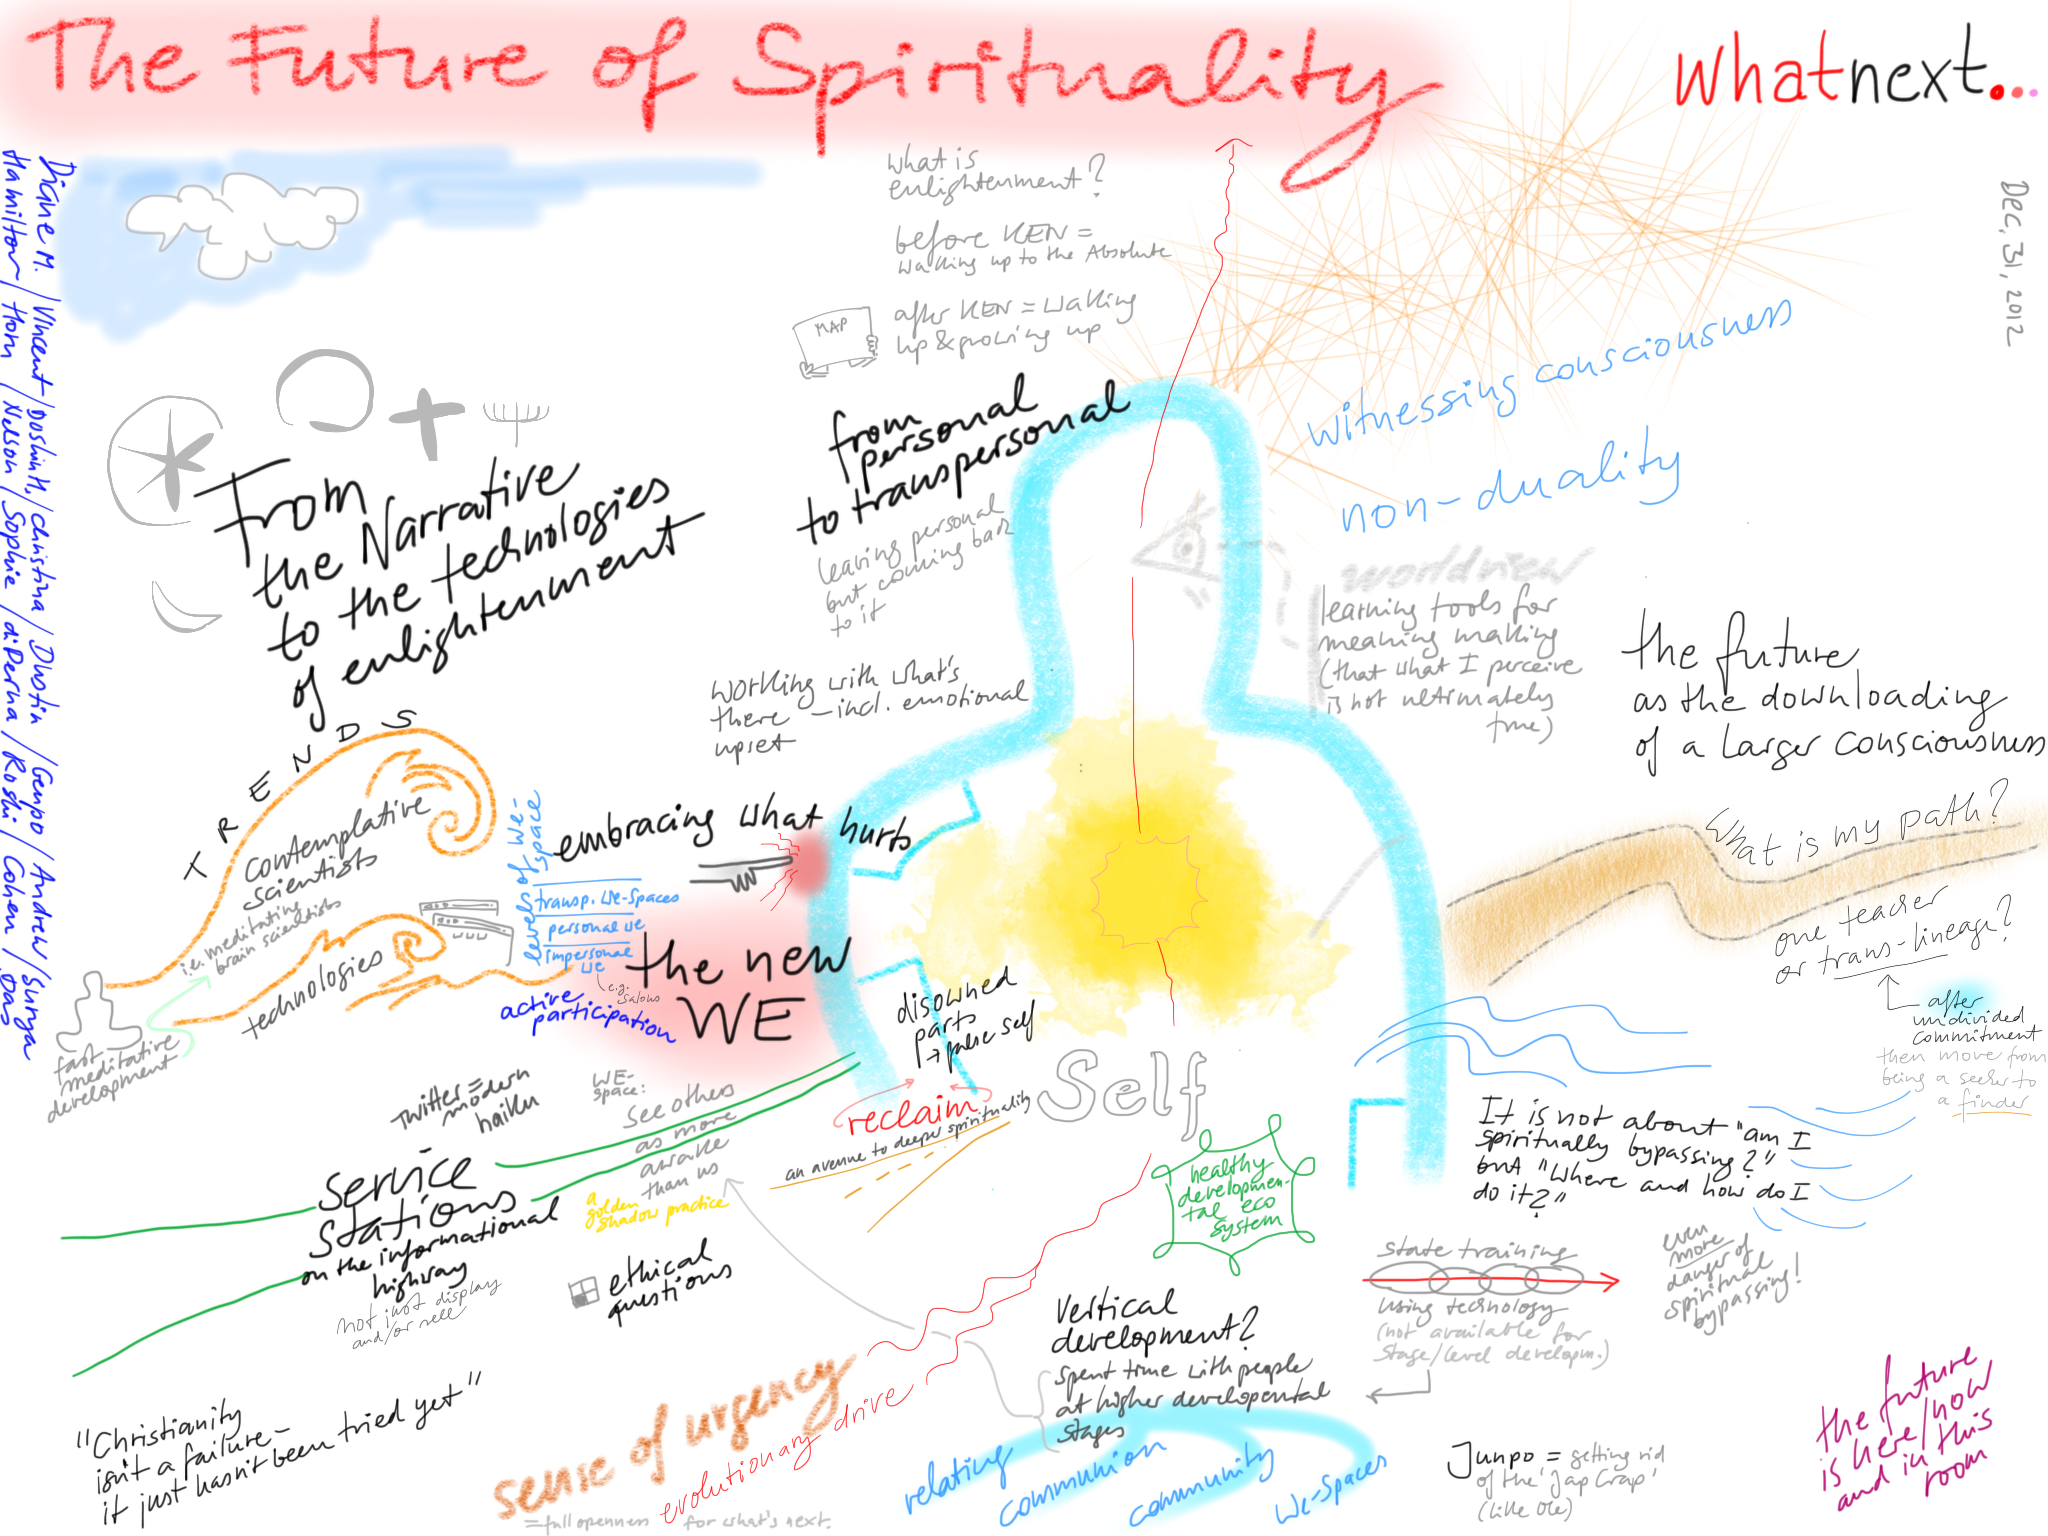 The Future of Spirituality
whatnext...
Dec, 31, 2012
Diane M. / Vincent / Doshin H. / Christina / Dustin / Genpo / Andrew / Surya
Hamilton / Horn / Nelson / Sophie / diPerna / Roshi / Cohen / Das
what is
enlightenment?
before KEN =
waking up to the Absolute
MAP
after KEN = waking
up & growing up
from
personal
to transpersonal
leaving personal
but coming back
to it
witnessing consciousness
non-duality
worldview
learning tools for
meaning making
(that what I perceive
is not ultimately
true)
From
the Narrative
to the technologies
of enlightenment
working with what's
there - incl. emotional
upset
the future
as the downloading
of a larger consciousness
TRENDS
contemplative
scientists
i.e. meditating
brain scientists
technologies
fast
meditative
development
levels of we-
space
transp. we-spaces
personal we
impersonal
we
e.g.
salons
active
participation
embracing what hurts
the new
WE
disowned
parts
→ false self
reclaim
an avenue to deeper spirituality
Self
What is my path?
one teacher
or trans-lineage?
after
undivided
commitment
then move from
being a seeker to
a finder
It is not about "am I
spiritually bypassing?"
but "where and how do I
do it?"
Twitter = modern
haiku
WE-
space:
see others
as more
awake
than us
a
golden
shadow practice
service
stations
on the informational
highway
not just display
and/or sell
ethical
questions
healthy
developmen-
tal eco
system
state training
using technology
(not available for
stage/level developm.)
even
more
danger of
spiritual
bypassing!
vertical
development?
spent time with people
at higher developental
stages
"Christianity
isn't a failure -
it just hasn't been tried yet"
sense of urgency
evolutionary drive
= full openness for what's next.
relating
communion
community
we-spaces
Junpo = getting rid
of the 'Jap Crap'
(like Ole)
the future
is here/now
and in this
room